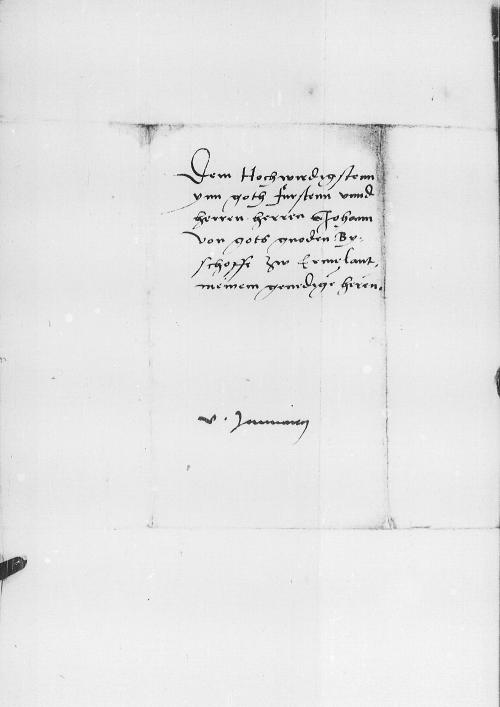 Dem Hochwirdigstenn
ynn goth furstenn vnnd
herren herren Johann
von gots gnoden By-
schoffe zw Ermelant,
meinem genedige heren.
v. Januarij